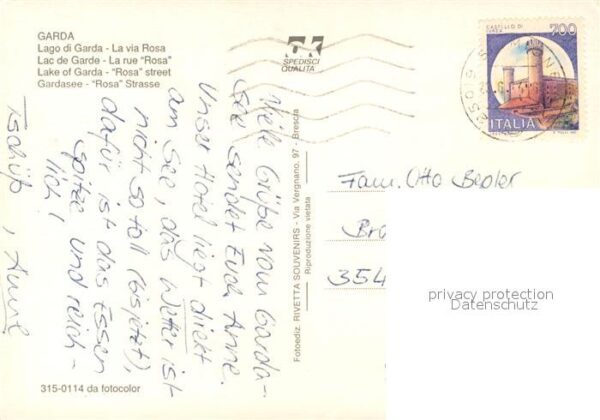 GARDA
Lago di Garda - La via Rosa
Lac de Garde - La rue "Rosa"
Lake of Garda - "Rosa" street
Gardasee - "Rosa" Strasse
SPEDISCI
QUALITÀ
CASTELLO DI
IVREA
700
ITALIA
Viele Grüße vom Garda-
see sendet Euch Anne.
Unser Hotel liegt direkt
am See, das Wetter ist
nicht so toll (bisjetzt),
dafür ist das Essen
spitze und reich-
lich!
Tschüß, Anne
Fotoediz. RIVETTA SOUVENIRS - Via Vergnano, 97 - Brescia
Riproduzione vietata
Fam. Otto
354
privacy protection
Datenschutz
315-0114 da fotocolor